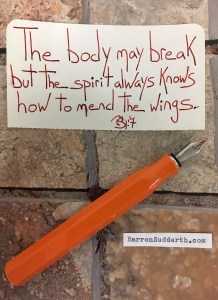 The body may break
but the spirit always knows
how to mend the wings.
RarrenSuddarth.com